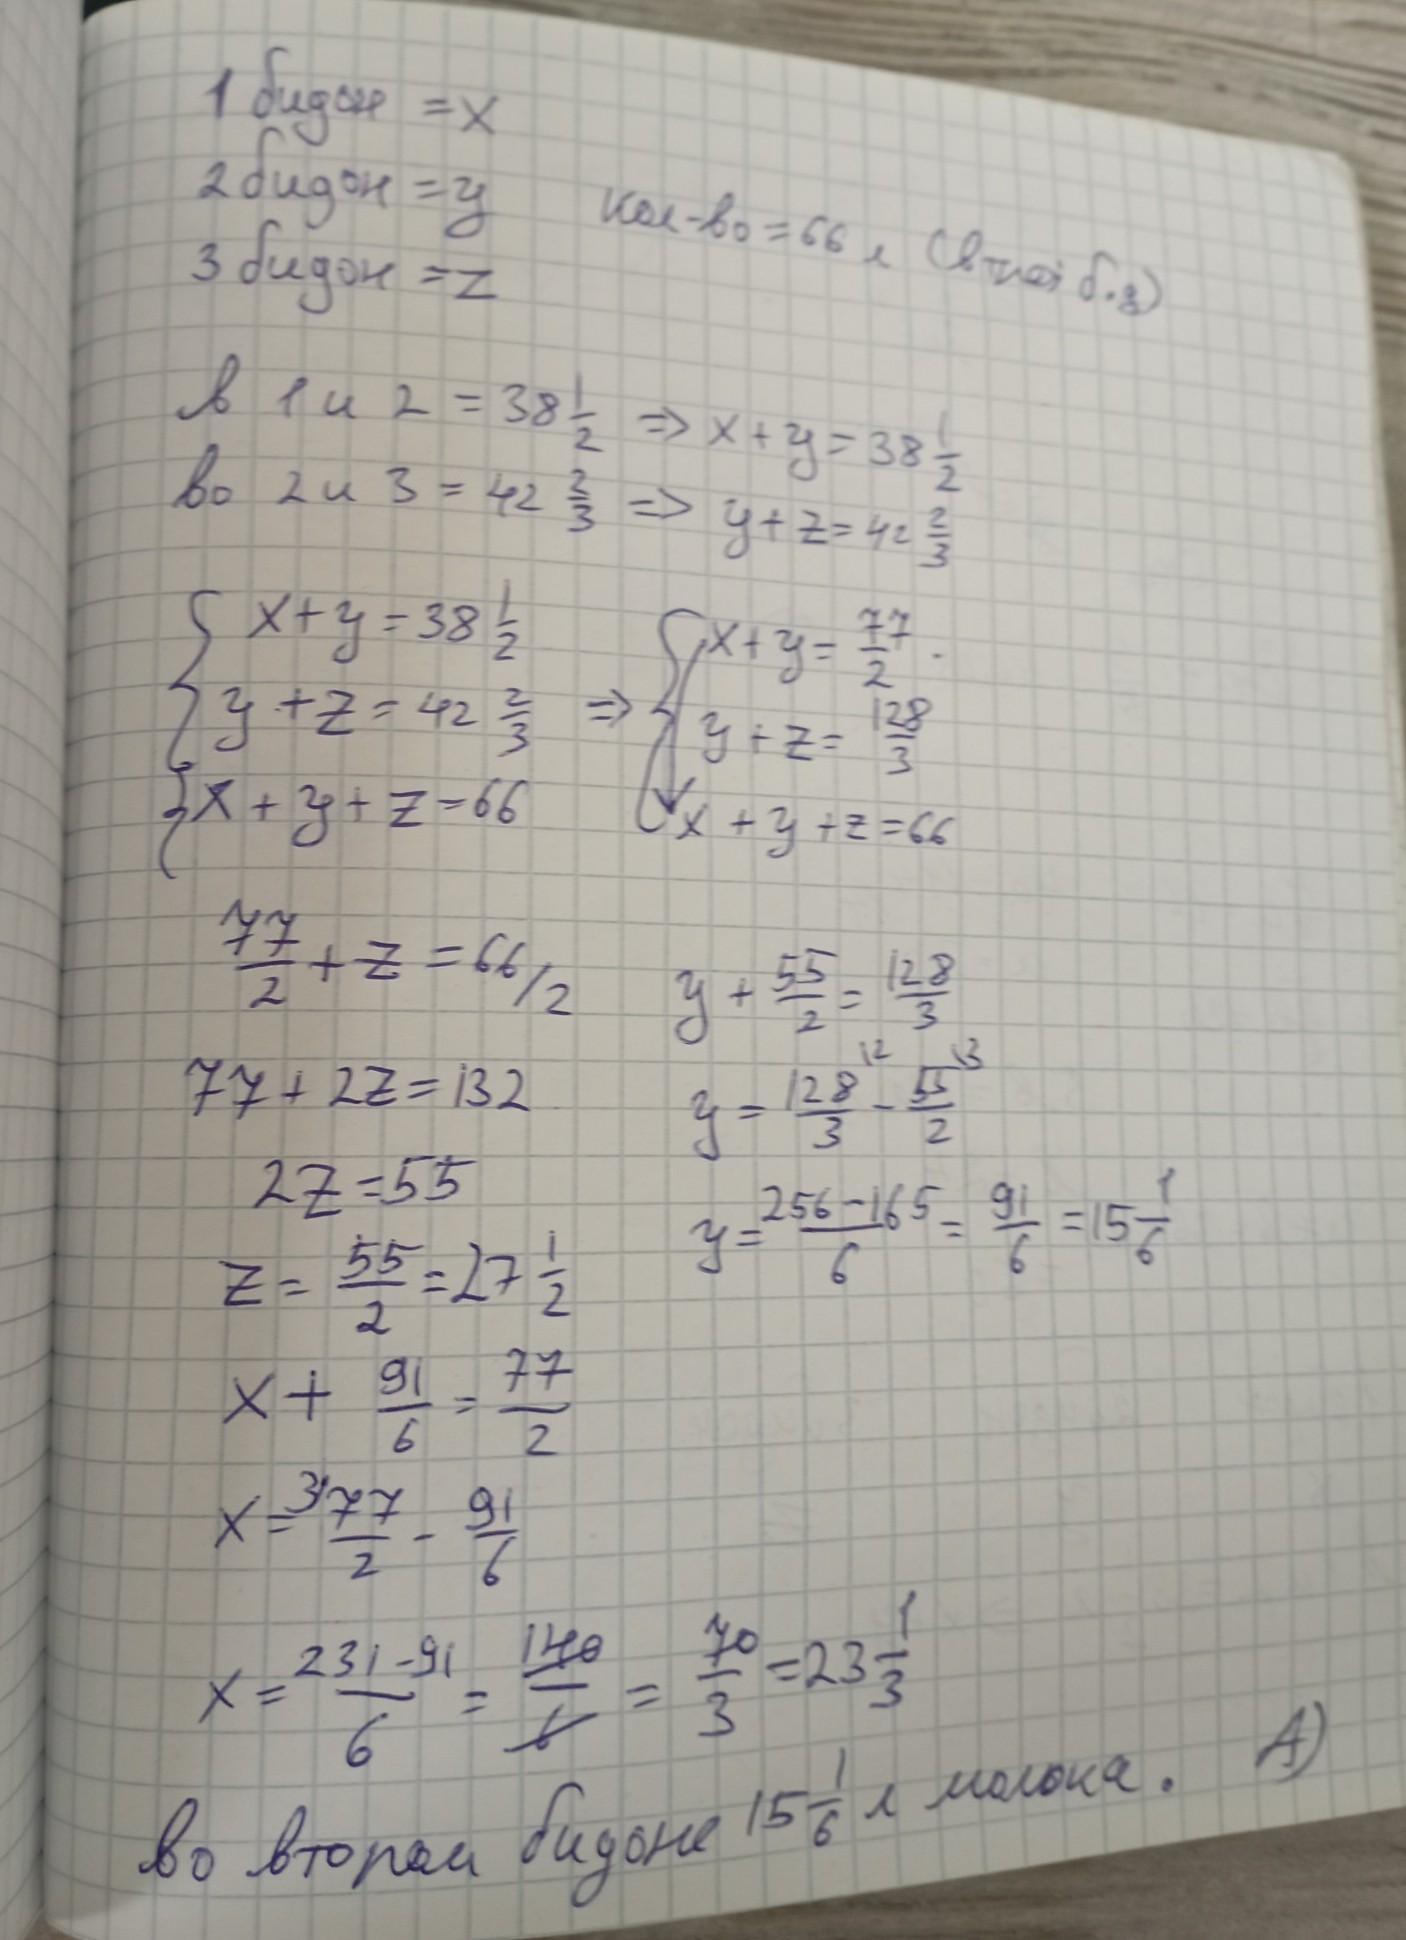 1 бидон = x
2 бидон = y
3 бидон = z
кол-во = 66 л (в трёх б.)
в 1 и 2 = 38 1/2 => x + y = 38 1/2
во 2 и 3 = 42 2/3 => y + z = 42 2/3
x + y = 38 1/2
y + z = 42 2/3 =>
x + y + z = 66
x + y = 77/2
y + z = 128/3
x + y + z = 66
77/2 + z = 66 /2
77 + 2z = 132
2z = 55
z = 55/2 = 27 1/2
y + 55/2 = 128/3
y = 128/3 12 - 55/2 13
y = 256 - 165/6 = 91/6 = 15 1/6
x + 91/6 = 77/2
x = 3) 77/2 - 91/6
x = 231 - 91/6 = 140/6 = 70/3 = 23 1/3
во втором бидоне 15 1/6 л молока. A)